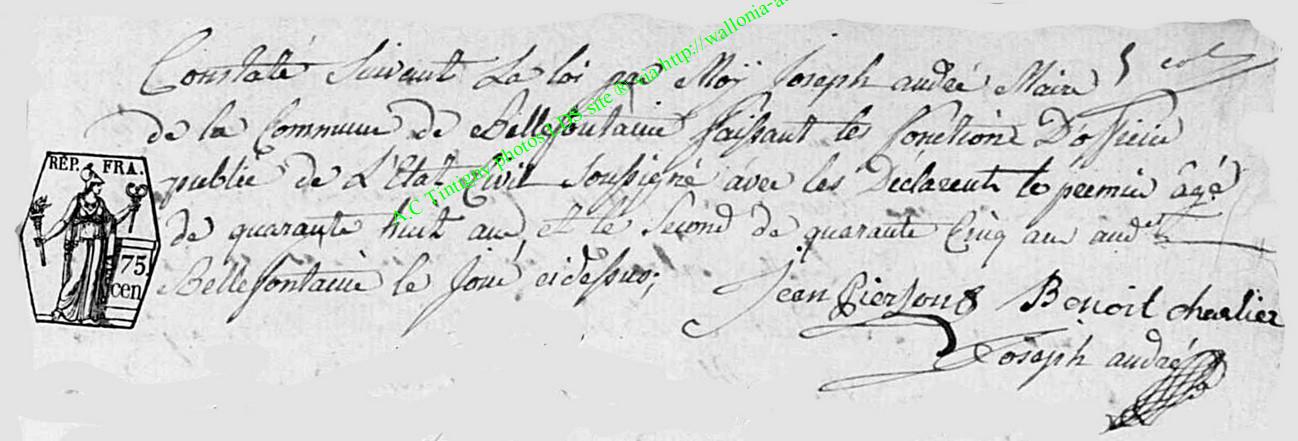 Constaté Suivant La loi par Moÿ Joseph andré Maire
de la Commune de Bellefontaine faisant les fonctions D'officier
publie de L'Etat Civil Soussigné avec les Déclarent le premier âgé
de quarante huit ans, et le Second de quarante Cinq ans audt
Bellefontaine le Jour cidessus;
Jean Pierson Benoit charlier
Joseph andré
RÉP. FRA.
75.
cen
A.C Tintigny photos LDS site © via http://wallonia-a